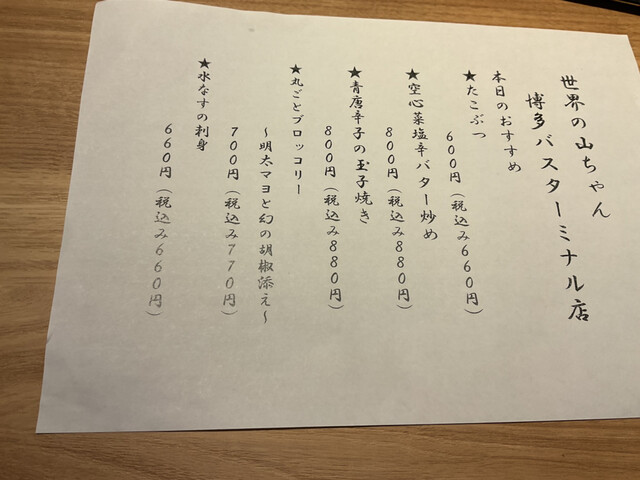 世界の山ちゃん
博多バスターミナル店
本日のおすすめ
★たこぶつ
600円(税込み660円)
★空心菜塩辛バター炒め
800円(税込み880円)
★青唐辛子の玉子焼き
800円(税込み880円)
★丸ごとブロッコリー
～明太マヨと幻の胡椒添え～
700円(税込み770円)
★水なすの刺身
660円(税込み660円)